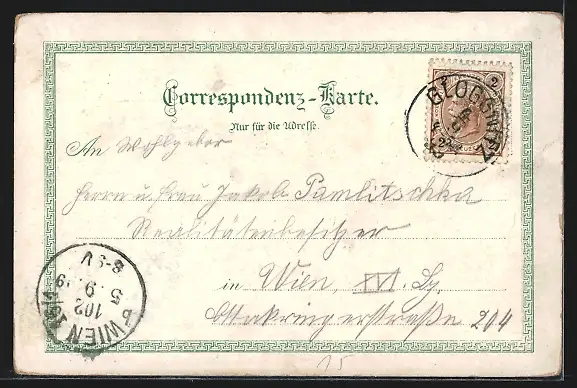 Correspondenz-Karte.
Nur für die Adresse.
2
GLOGGNITZ
An Wohlgeboren
Herrn u. Frau Jakob Pamlitschka
Realitätenbesitzer
in Wien, XVI. Bz.
Ottakringerstraße 204
WIEN 16/1
102
5. 9.
8-9V
15